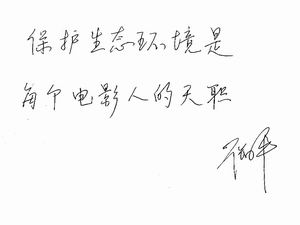 保护生态环境是
每个电影人的天职